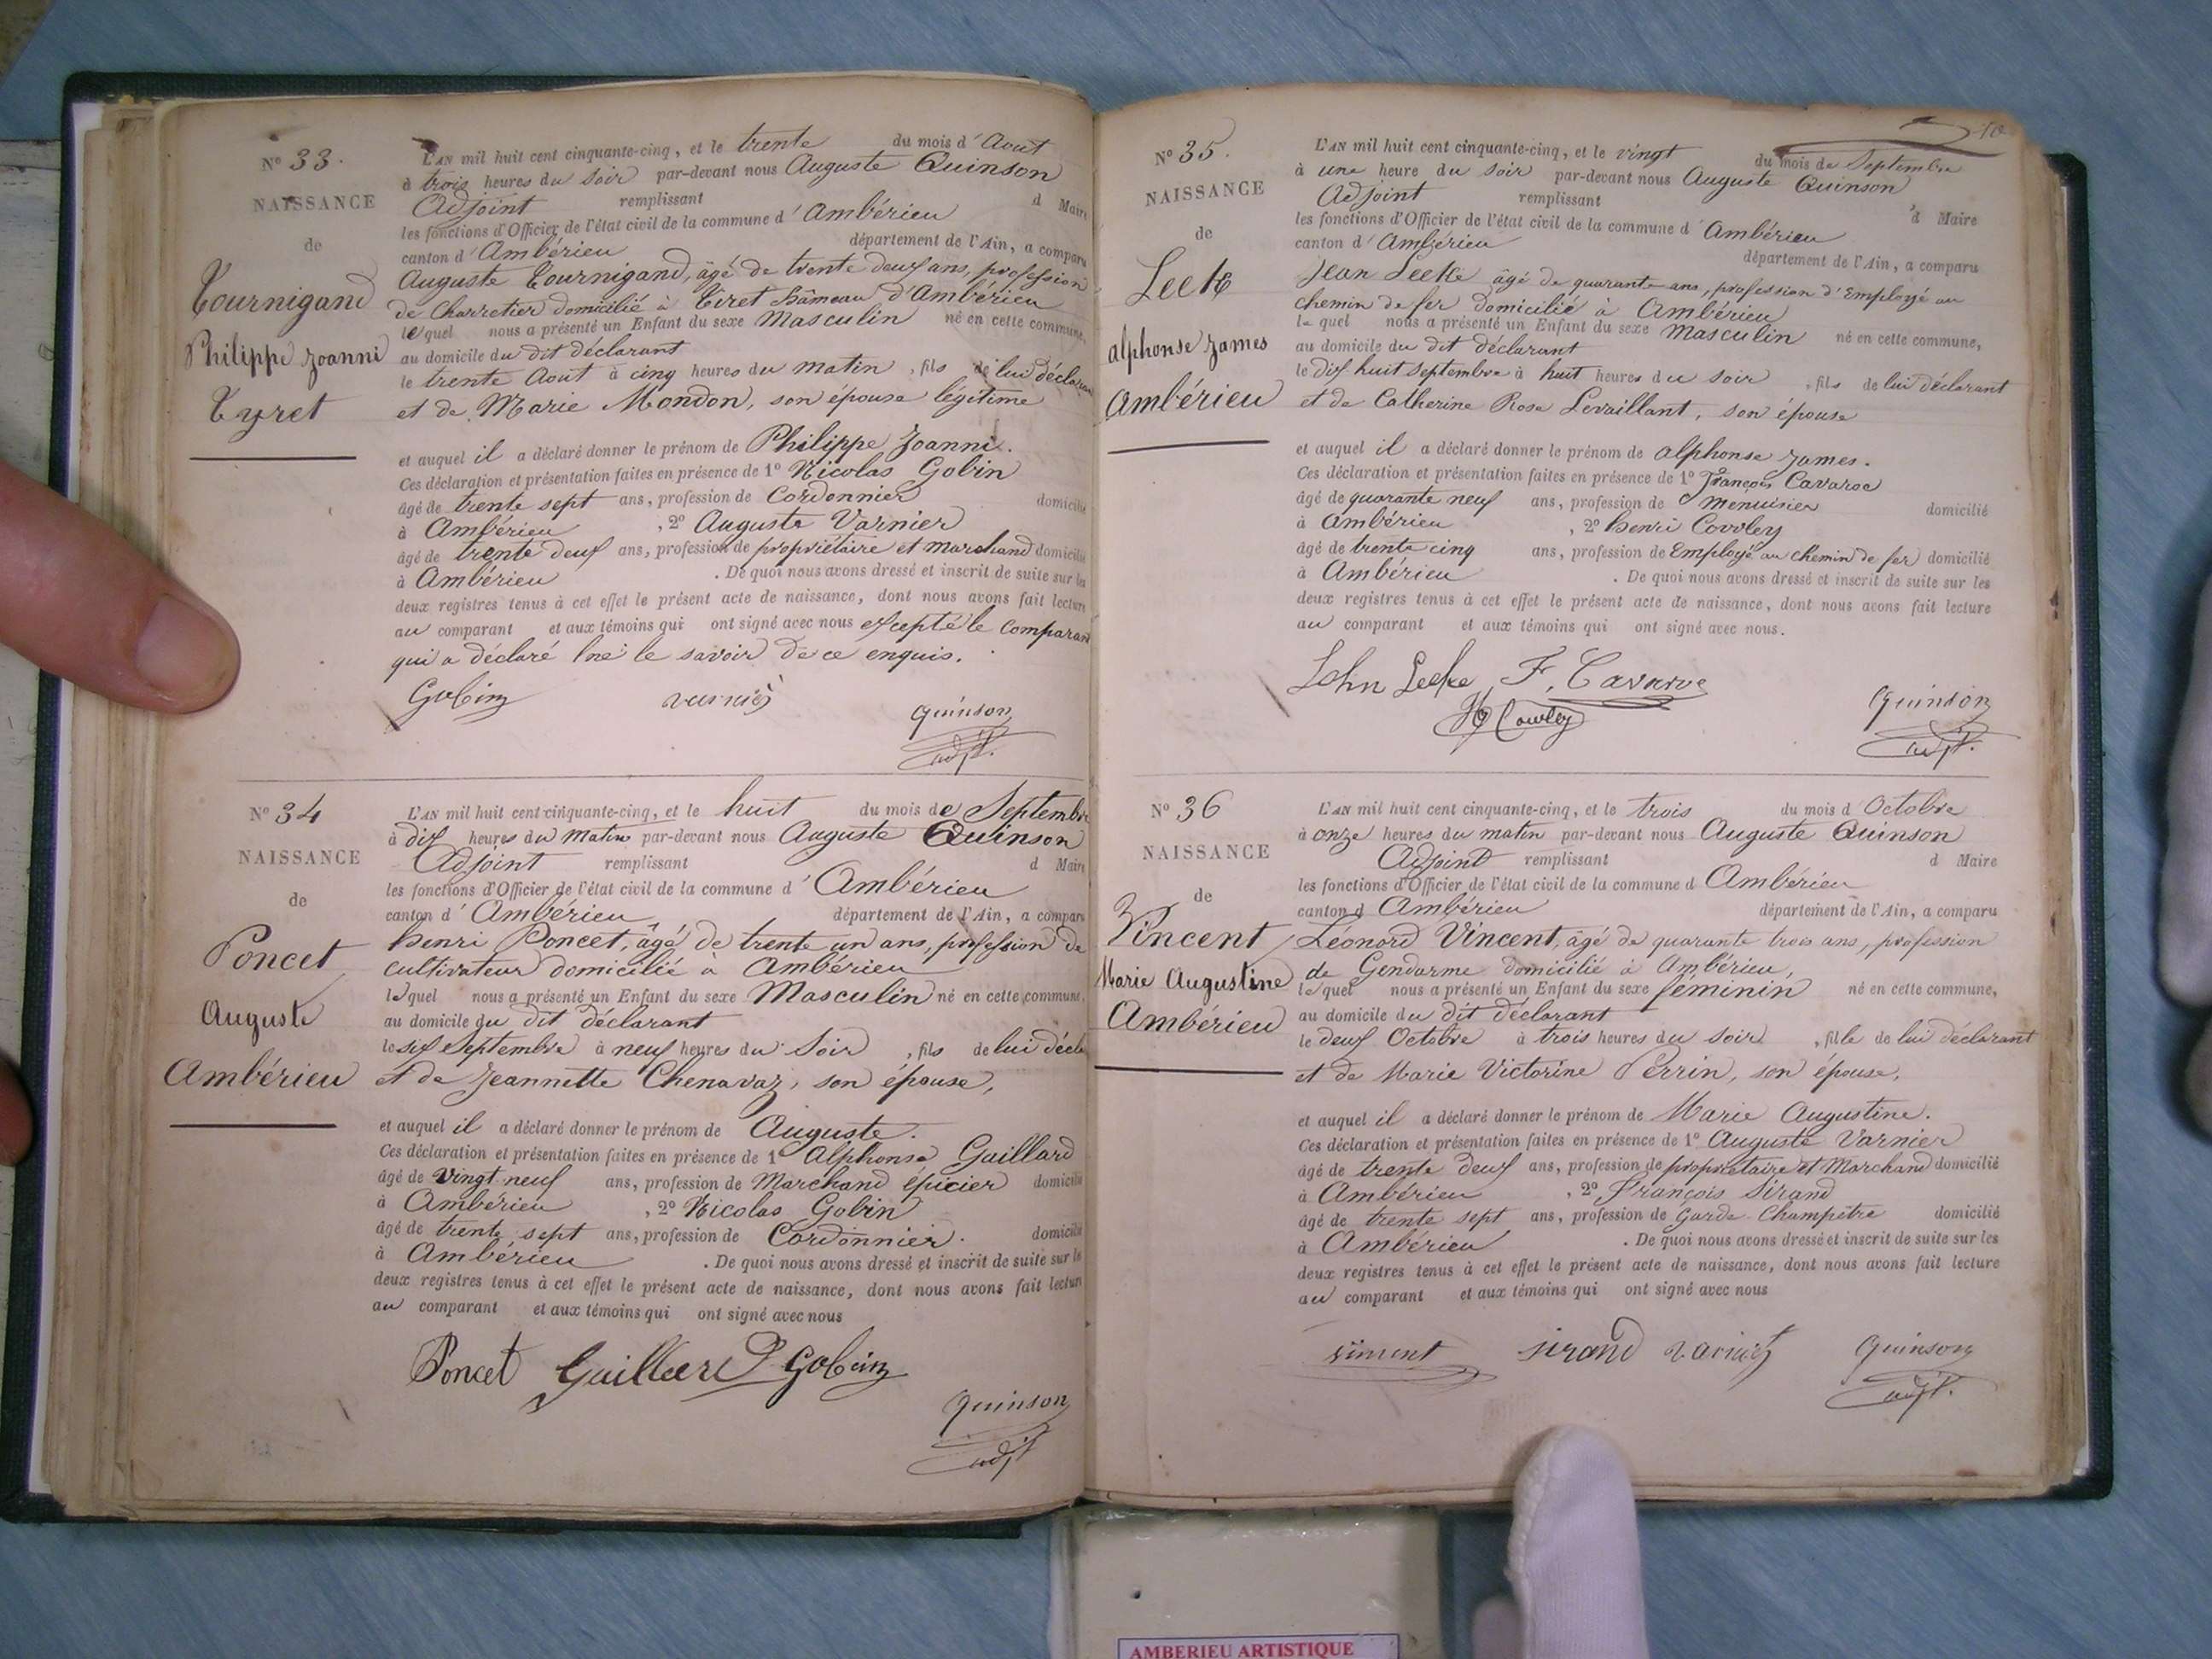 N° 33.
NAISSANCE
de
Tournigand
Philippe Joanni
Tyret
L'AN mil huit cent cinquante-cinq, et le trente du mois d'Aout
à trois heures du soir par-devant nous Auguste Quinson
Adjoint remplissant d Maire
les fonctions d'Officier de l'état civil de la commune d'Ambérieu
canton d'Ambérieu département de l'Ain, a comparu
Auguste Tournigand, âgé de trente deux ans, profession
de Charretier domicilié à Tiret hâmeau d'Ambérieu
lequel nous a présenté un Enfant du sexe Masculin né en cette commune,
au domicile du dit déclarant
le trente Aout à cinq heures du matin, fils de lui déclarant
et de Marie Mondon, son épouse légitime
et auquel il a déclaré donner le prénom de Philippe Joanni.
Ces déclaration et présentation faites en présence de 1° Nicolas Gobin
âgé de trente sept ans, profession de Cordonnier domicilié
à Ambérieu, 2° Auguste Varnier
âgé de trente deux ans, profession de propriétaire et marchand domicilié
à Ambérieu. De quoi nous avons dressé et inscrit de suite sur les
deux registres tenus à cet effet le présent acte de naissance, dont nous avons fait lecture
au comparant et aux témoins qui ont signé avec nous excepté le comparant
qui a déclaré ne le savoir de ce enquis.
Gobin varnier
quinson
adjt.
N° 34
NAISSANCE
de
Poncet
Auguste
Ambérieu
L'AN mil huit cent cinquante-cinq, et le huit du mois de Septembre
à dix heures du matin par-devant nous Auguste Quinson
Adjoint remplissant d Maire
les fonctions d'Officier de l'état civil de la commune d'Ambérieu
canton d'Ambérieu département de l'Ain, a comparu
henri Poncet, âgé de trente un ans, profession de
cultivateur domicilié à Ambérieu
lequel nous a présenté un Enfant du sexe Masculin né en cette commune,
au domicile du dit déclarant
le six Septembre à neuf heures du Soir, fils de lui décla
et de Jeannette Chenavaz, son épouse,
et auquel il a déclaré donner le prénom de Auguste.
Ces déclaration et présentation faites en présence de 1° Alphonse Gaillard
âgé de vingt neuf ans, profession de Marchand épicier domicilié
à Ambérieu, 2° Nicolas Gobin
âgé de trente sept ans, profession de Cordonnier. domicilié
à Ambérieu. De quoi nous avons dressé et inscrit de suite sur les
deux registres tenus à cet effet le présent acte de naissance, dont nous avons fait lecture
au comparant et aux témoins qui ont signé avec nous
Poncet Gaillard Gobin
quinson
adjt
10
N° 35.
NAISSANCE
de
Leeke
alphonse James
Ambérieu
L'AN mil huit cent cinquante-cinq, et le vingt du mois de Septembre
à une heure du soir par-devant nous Auguste Quinson
Adjoint remplissant d Maire
les fonctions d'Officier de l'état civil de la commune d'Ambérieu
canton d'Ambérieu département de l'Ain, a comparu
Jean Leeke âgé de quarante ans, profession d'Employé au
chemin de fer domicilié à Ambérieu
lequel nous a présenté un Enfant du sexe masculin né en cette commune,
au domicile du dit déclarant
le dix huit septembre à huit heures du soir, fils de lui déclarant
et de Catherine Rose Levaillant, son épouse
et auquel il a déclaré donner le prénom de alphonse James.
Ces déclaration et présentation faites en présence de 1° François Cavaroc
âgé de quarante neuf ans, profession de menuisier domicilié
à Ambérieu, 2° henri Cowley
âgé de trente cinq ans, profession de Employé au chemin de fer domicilié
à Ambérieu. De quoi nous avons dressé et inscrit de suite sur les
deux registres tenus à cet effet le présent acte de naissance, dont nous avons fait lecture
au comparant et aux témoins qui ont signé avec nous.
John Leeke F. Cavaroc
H Cowley
quinson
adjt.
N° 36
NAISSANCE
de
Vincent
Marie Augustine
Ambérieu
L'AN mil huit cent cinquante-cinq, et le trois du mois d'Octobre
à onze heures du matin par-devant nous Auguste Quinson
Adjoint remplissant d Maire
les fonctions d'Officier de l'état civil de la commune d Ambérieu
canton d Ambérieu département de l'Ain, a comparu
Léonard Vincent, âgé de quarante trois ans, profession
de Gendarme domicilié à Ambérieu,
lequel nous a présenté un Enfant du sexe féminin né en cette commune,
au domicile du dit déclarant
le deux Octobre à trois heures du soir, fille de lui déclarant
et de Marie Victorine Perrin, son épouse,
et auquel il a déclaré donner le prénom de Marie Augustine.
Ces déclaration et présentation faites en présence de 1° Auguste Varnier
âgé de trente deux ans, profession de propriétaire et Marchand domicilié
à Ambérieu, 2° François Sirand
âgé de trente sept ans, profession de Garde Champêtre domicilié
à Ambérieu. De quoi nous avons dressé et inscrit de suite sur les
deux registres tenus à cet effet le présent acte de naissance, dont nous avons fait lecture
au comparant et aux témoins qui ont signé avec nous
vincent sirand varnier quinson
adjt.
AMBERIEU ARTISTIQUE